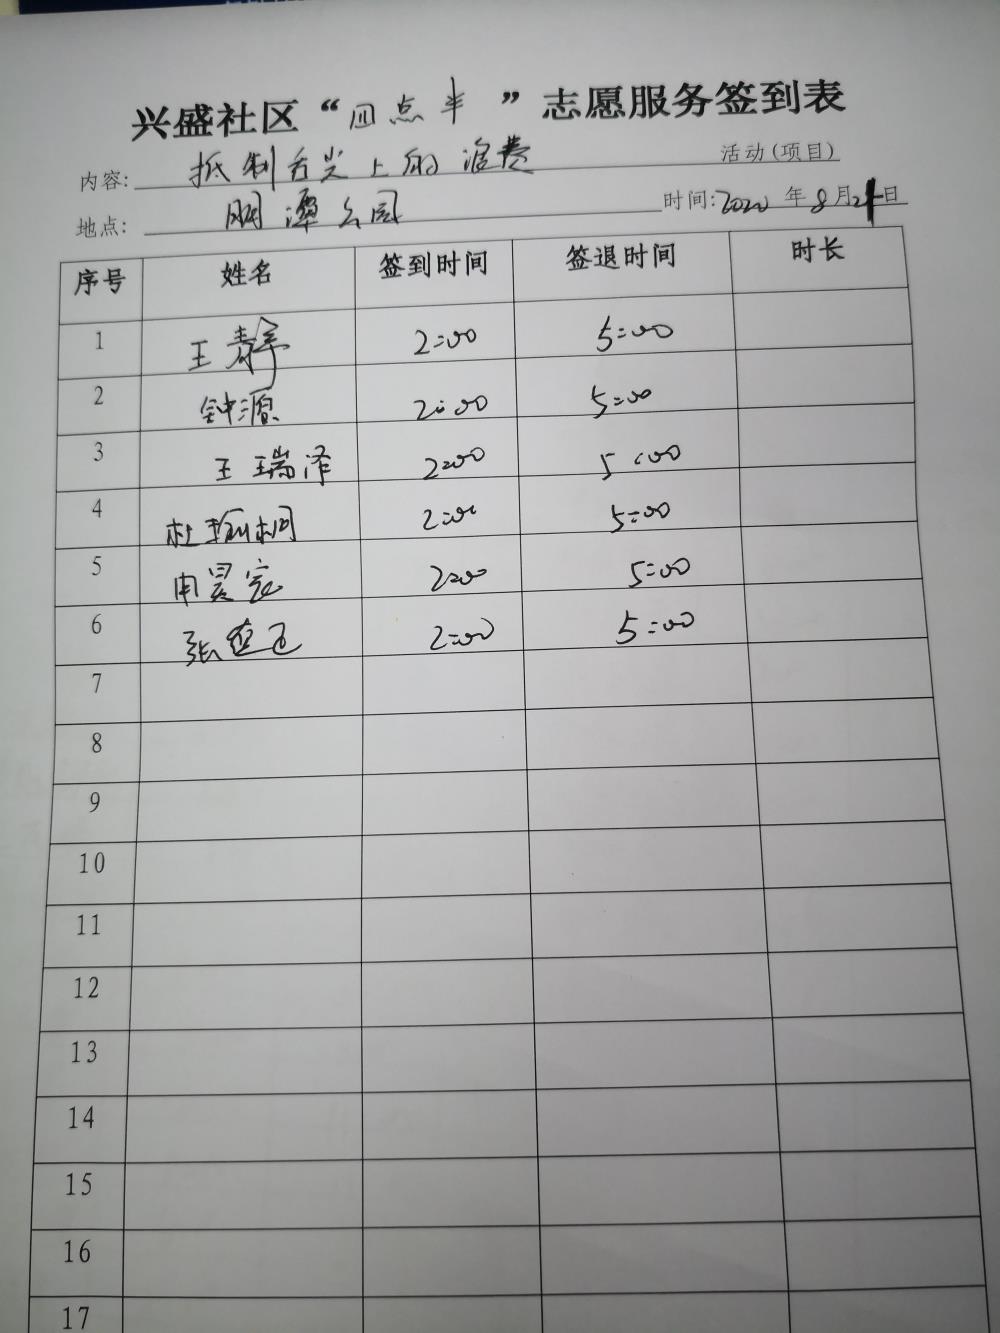 兴盛社区“四点半”志愿服务签到表
内容: 抵制舌尖上的浪费 活动(项目)
地点: 潭公园 时间:2020年8月2日
序号 姓名 签到时间 签退时间 时长
1 王静 2:00 5:00
2 钟源 2:00 5:00
3 王瑞泽 2:00 5:00
4 杜 桐 2:00 5:00
5 申昊 2:00 5:00
6 张 2:00 5:00
7
8
9
10
11
12
13
14
15
16
17